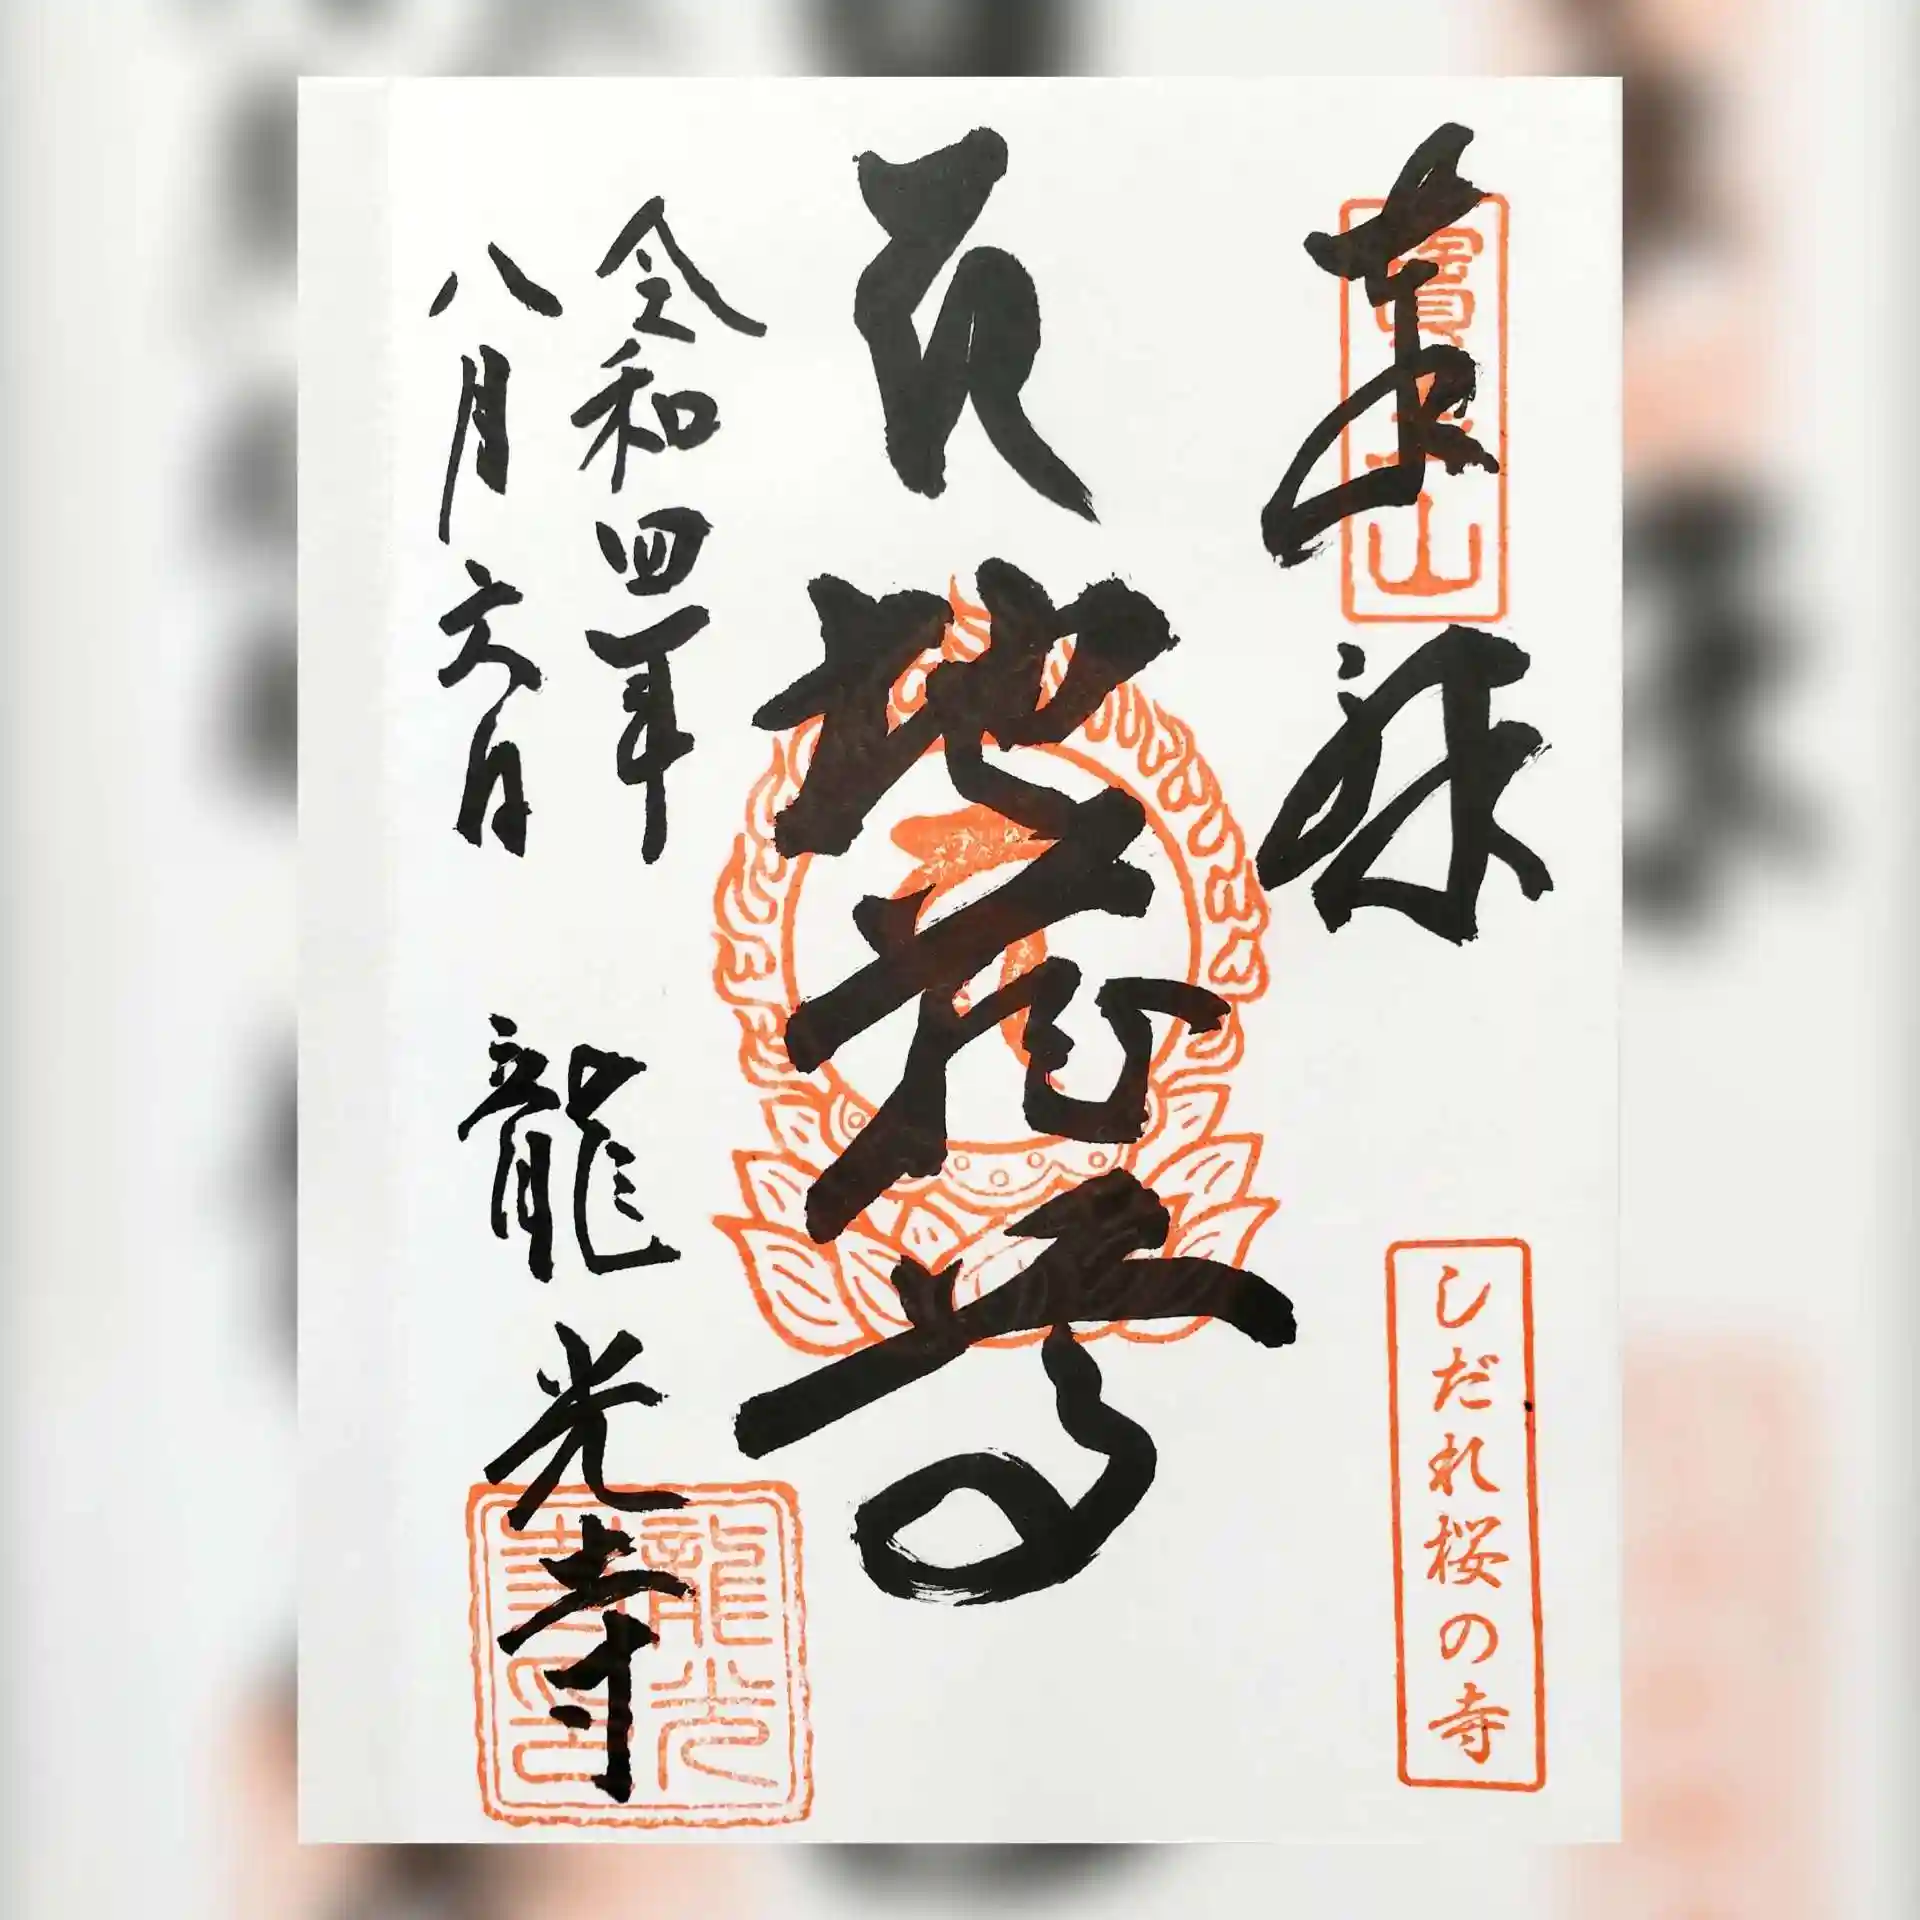 奉拝
山
しだれ桜の寺
地蔵尊
令和四年
八月六日
龍光寺
龍光
寺印